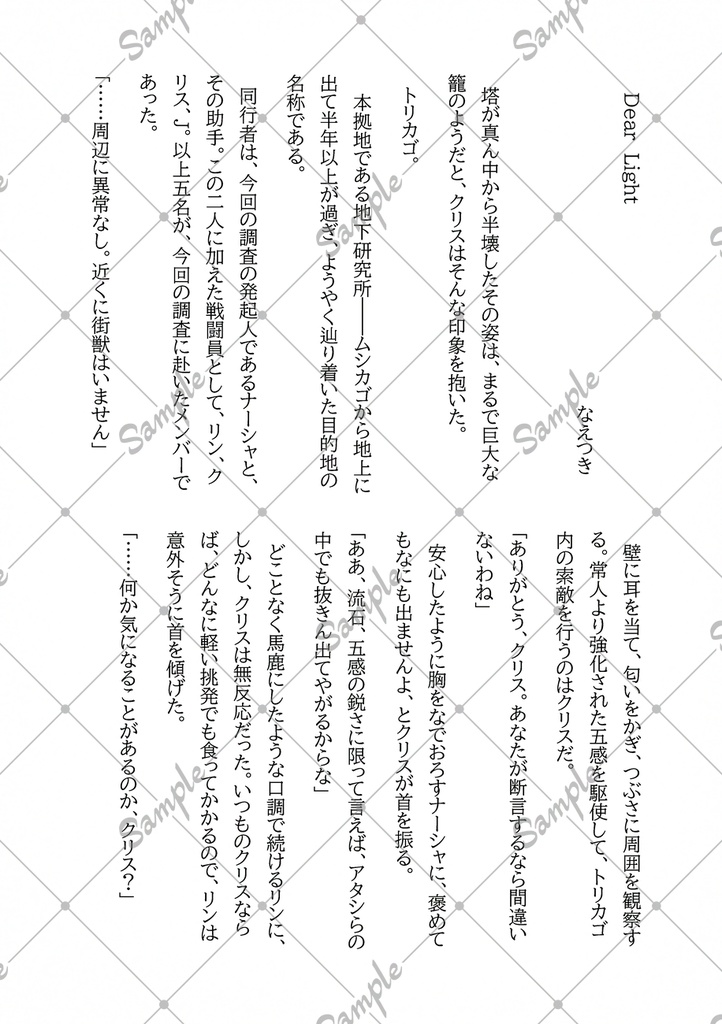 Dear Light
なえつき
塔が真ん中から半壊したその姿は、まるで巨大な
籠のようだと、クリスはそんな印象を抱いた。
トリカゴ。
本拠地である地下研究所――ムシカゴから地上に
出て半年以上が過ぎ、ようやく辿り着いた目的地の
名称である。
同行者は、今回の調査の発起人であるナーシャと、
その助手。この二人に加えた戦闘員として、リン、ク
リス、J。以上五名が、今回の調査に赴いたメンバーで
あった。
「……周辺に異常なし。近くに街獣はいません」
壁に耳を当て、匂いをかぎ、つぶさに周囲を観察す
る。常人より強化された五感を駆使して、トリカゴ
内の索敵を行うのはクリスだ。
「ありがとう、クリス。あなたが断言するなら間違い
ないわね」
安心したように胸をなでおろすナーシャに、褒めて
もなにも出ませんよ、とクリスが首を振る。
「ああ、流石、五感の鋭さに限って言えば、アタシらの
中でも抜きん出てやがるからな」
どことなく馬鹿にしたような口調で続けるリンに、
しかし、クリスは無反応だった。いつものクリスなら
ば、どんなに軽い挑発でも食ってかかるので、リンは
意外そうに首を傾げた。
「……何か気になることがあるのか、クリス?」
Sample
Sample
Sample
Sample
Sample
Sample
Sample
Sample
Sample
Sample